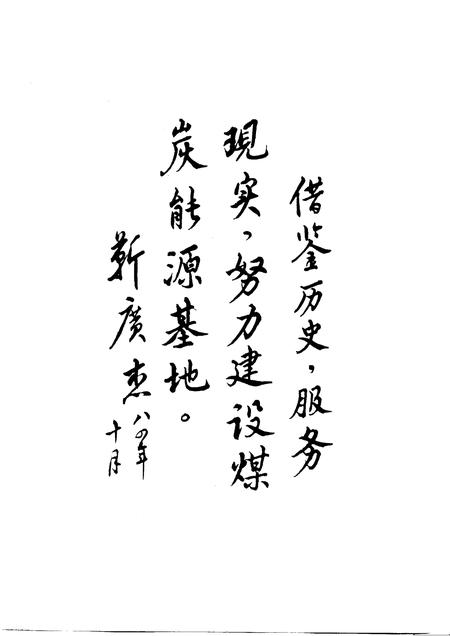 借鉴历史，服务
現实，努力建设煤
炭能源基地。
靳廣杰
八四年
十月